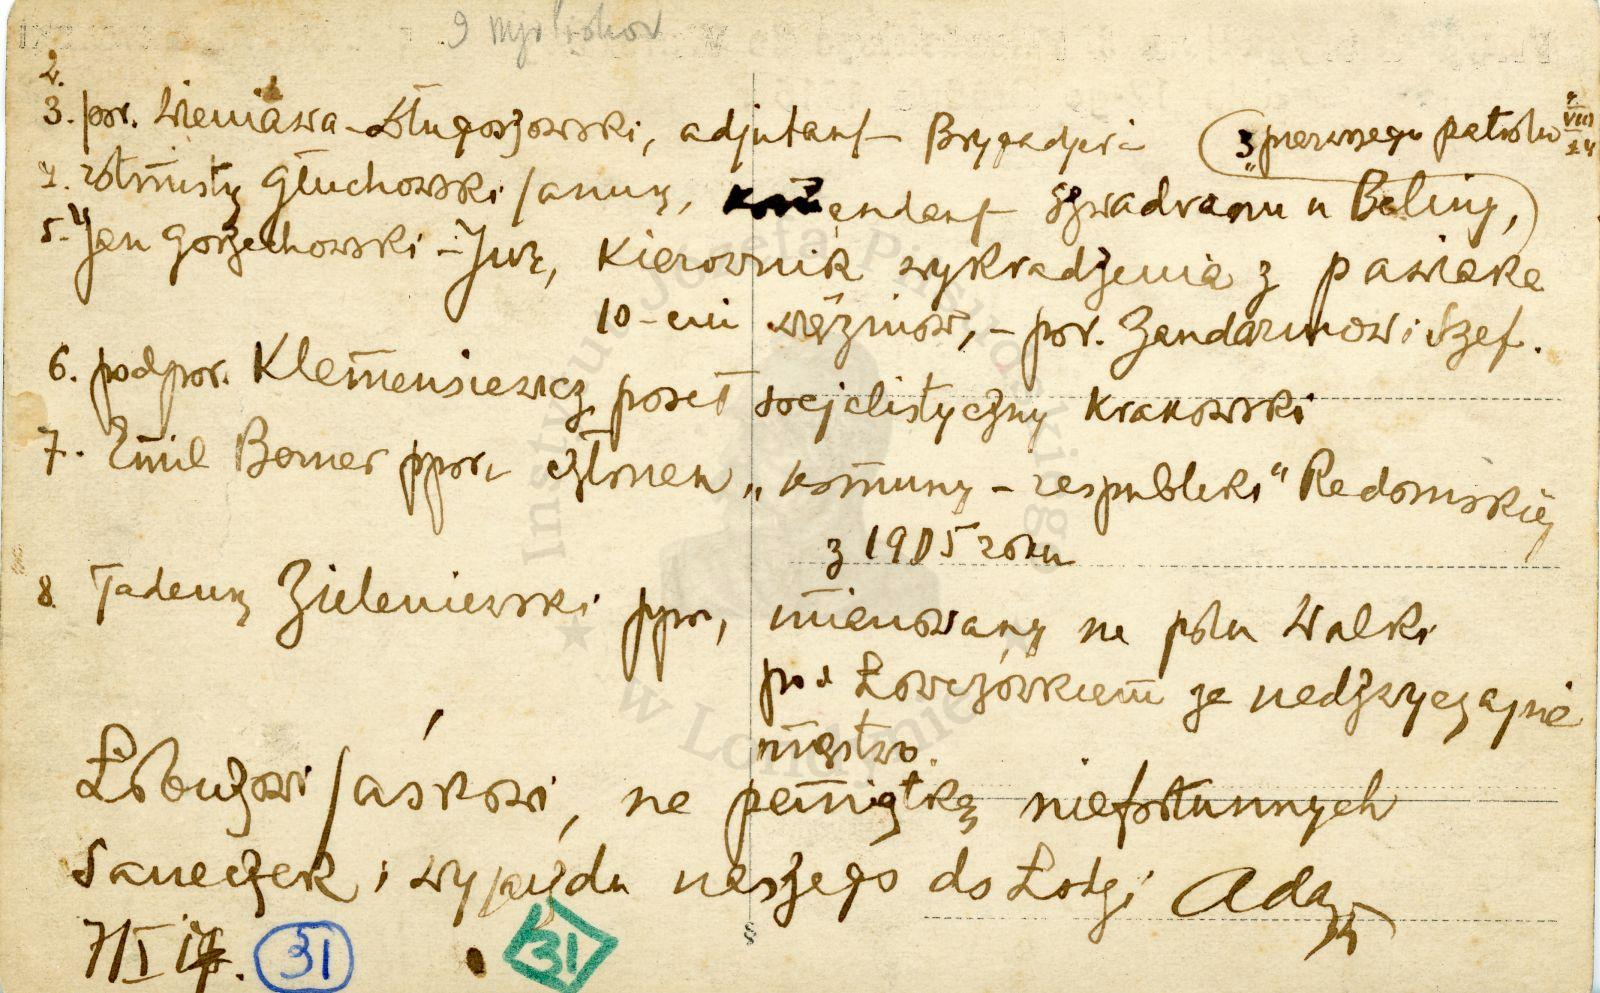 2.
3. por. Wieniawa-Długoszowski, adjutant Brygadjera (z pierwszego patrolu
VIII
4. rotmistrz Głuchowski Janusz, komendant szwadronu u Beliny,
5. Jan Gorzechowski - Jur, Kierownik wykradzenia z pawiaka
10-ciu więzniów, - por. Żandarmów i Szef.
6. podpor. Klemensiewicz poseł socjalistyczny krakowski
7. Emil Borner ppor. członek „komuny - respubliki" Radomskiej
z 1905 roku
8. Tadeusz Zieleniewski ppor, mianowany na polu walki
pod Łowczówkiem za nadzwyczajne
męstwo.
Łobuzowi Jaśkowi, na pamiątkę niefortunnych
Saneczek i wyjazdu naszego do Łodzi Adaś
7/I
31
31
Instytut Józefa Piłsudskiego
w Londynie